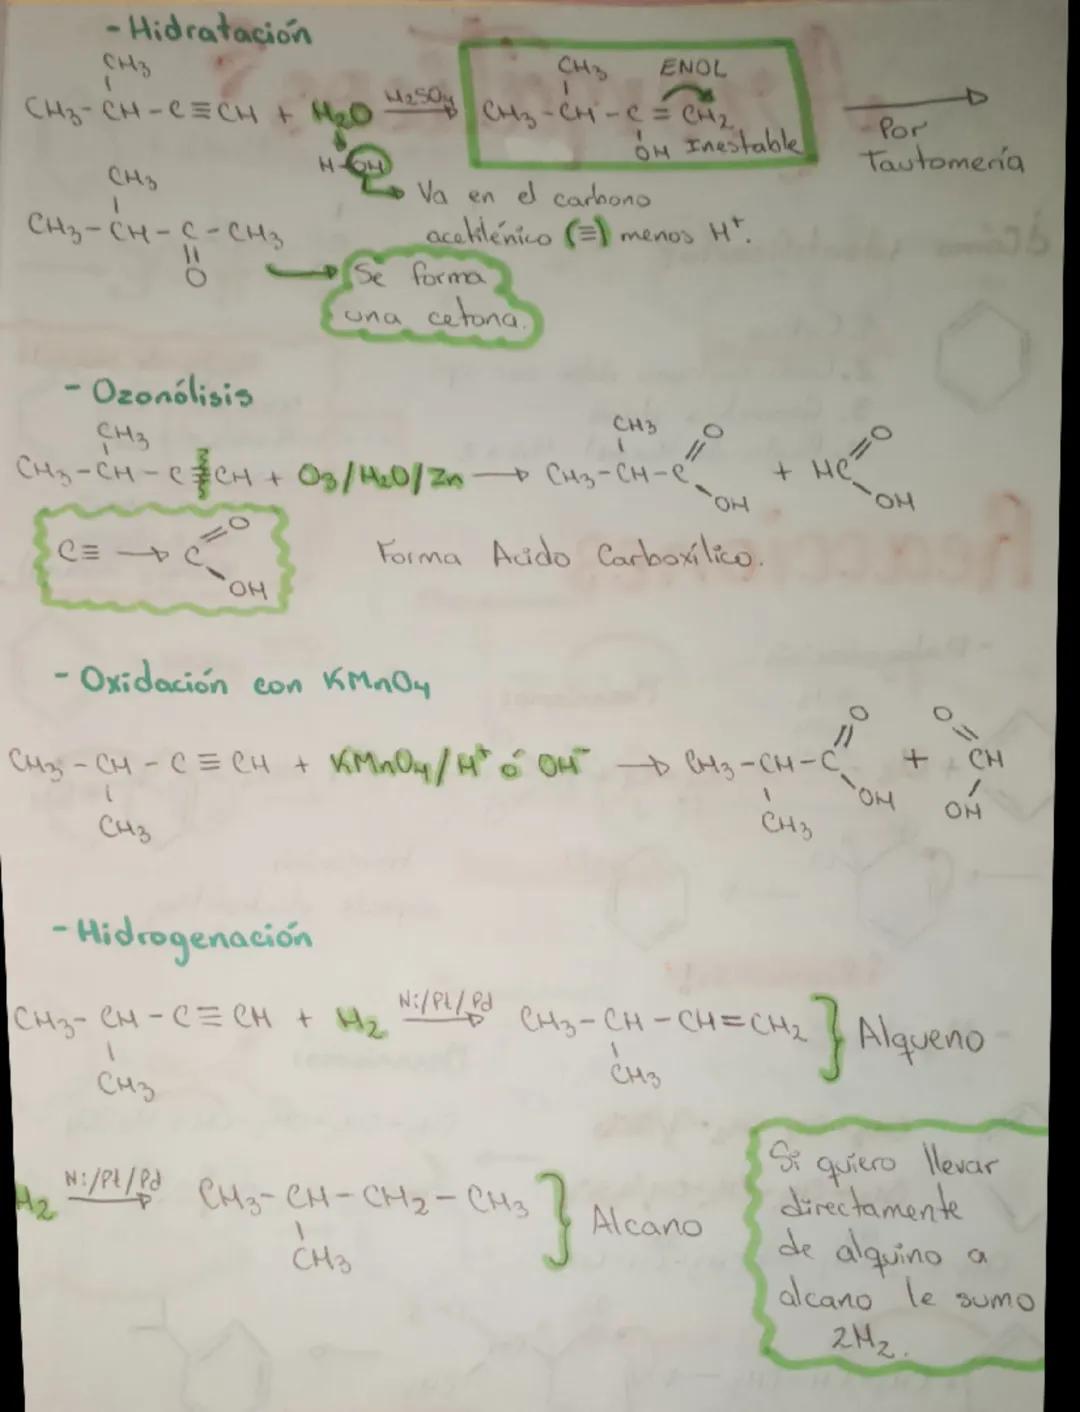 - Hidratación
CH3
CH3 - CH - C ≡ CH + H2O H2SO4 → CH3 - CH - C = CH2
CH3 ENOL
OH Inestable
Por
Tautomería
H-OH
Va en el carbono
acetilénico (≡) menos H+.
CH3
CH3 - CH - C - CH3
O
Se forma
una cetona.
- Ozonólisis
CH3
CH3 - CH - C ≡ CH + O3/H2O/Zn → CH3 - CH - C + HC
CH3 O O
OH OH
C≡ → C
O
OH
Forma Acido Carboxílico.
- Oxidación con KMnO4
O O
CH3 - CH - C ≡ CH + KMnO4/H+ ó OH- → CH3 - CH - C + CH
OH OH
CH3 CH3
- Hidrogenación
CH3 - CH - C ≡ CH + H2 Ni/Pt/Pd → CH3 - CH - CH = CH2 } Alqueno
CH3 CH3
H2 Ni/Pt/Pd → CH3 - CH - CH2 - CH3 } Alcano
CH3
Si quiero llevar
directamente
de alquino a
alcano le sumo
2H2.